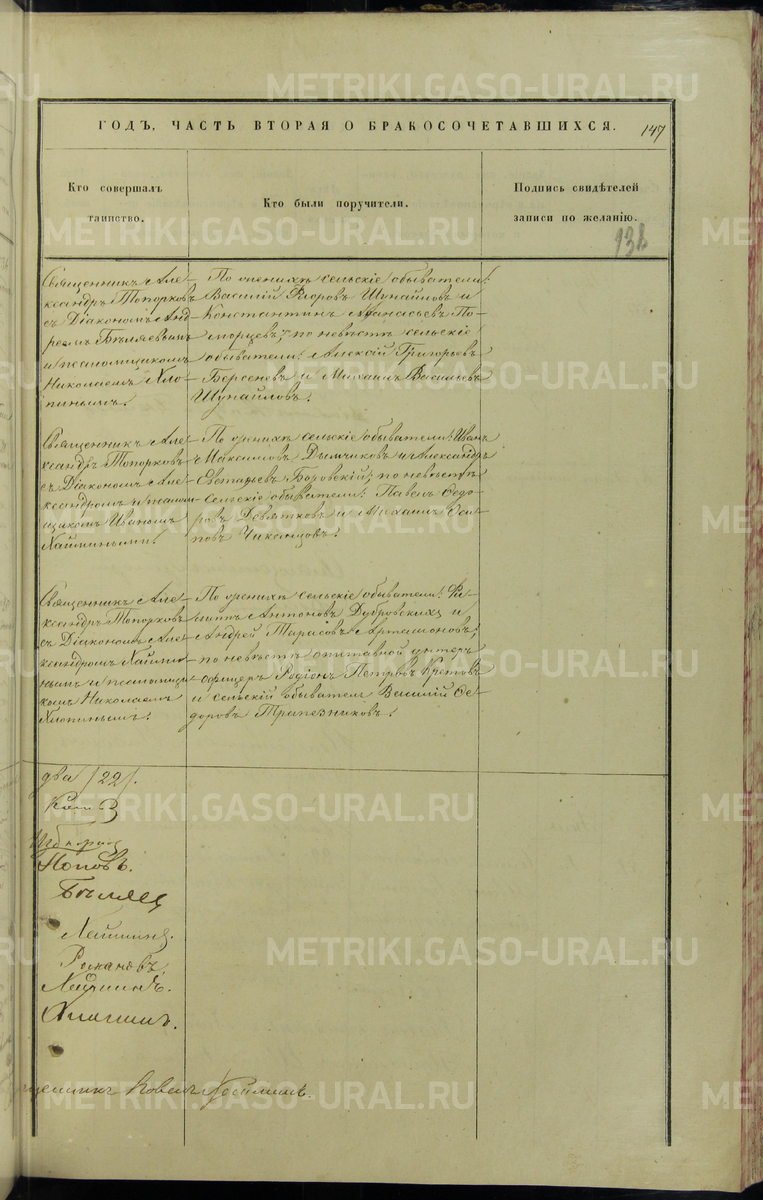 ГОДЪ, ЧАСТЬ ВТОРАЯ О БРАКОСОЧЕТАВШИХСЯ.
147
Кто совершалъ
таинство.
Кто были поручители.
Подпись свидѣтелей
записи по желанію.
Священникъ Але-
ксандръ Топорковъ
съ Діакономъ Анд-
реемъ Бѣляевымъ
и псаломщикомъ
Николаемъ Хло-
пинымъ.
По женихѣ сельскіе обыватели:
Василій Флоровъ Шунайловъ и
Константинъ Афанасьевъ По-
морцевъ; по невѣстѣ сельскіе
обыватели: Алексѣй Григорьевъ
Берсеневъ и Михаилъ Васильевъ
Шунайловъ.
Священникъ Але-
ксандръ Топорковъ
съ Діакономъ Але-
ксандромъ и псалом-
щикомъ Иваномъ
Хаймиными.
По женихѣ сельскіе обыватели: Иванъ
Максимовъ Дымчиковъ и Александръ
Боровскій; по невѣстѣ
сельскіе обыватели: Павелъ Ѳедо-
ровъ Девятковъ и Михаилъ Оси-
повъ
Священникъ Але-
ксандръ Топорковъ
съ Діакономъ Але-
ксандромъ Хайми-
нымъ и псаломщи-
комъ Николаемъ
Хлопинымъ.
По женихѣ сельскіе обыватели: Фи-
липпъ Антоновъ Дубровскихъ и
Андрей Тарасовъ Артемоновъ;
по невѣстѣ отставной унтеръ
офицеръ Родіонъ Петровъ Кретовъ
и сельскій обыватель Василій Ѳе-
доровъ Трапезниковъ.
два /22/.
Поповъ.
Бѣляевъ
Хайминъ.
Хайминъ.
Хлопинъ.
METRIKI.GASO-URAL.RU